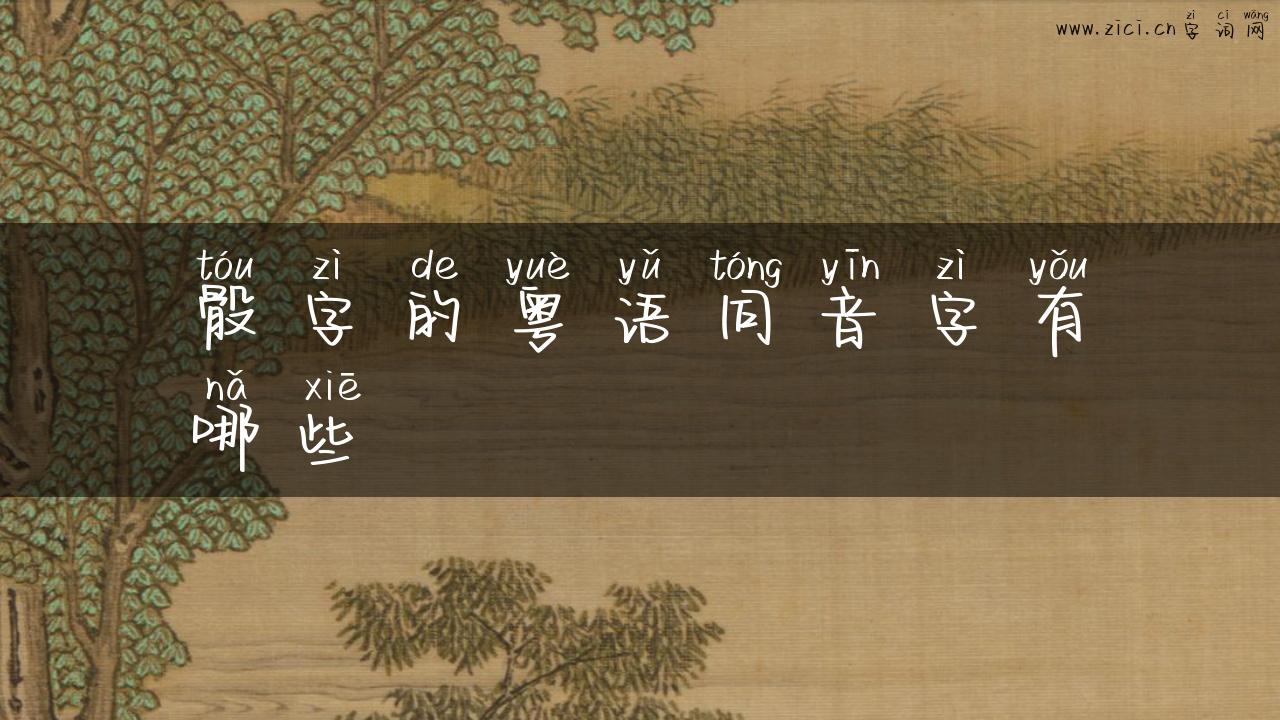 zì cí wǎng
www.zici.cn字词网
tóu zì de yuè yǔ tóng yīn zì yǒu
骰字的粤语同音字有
nǎ xiē
哪些